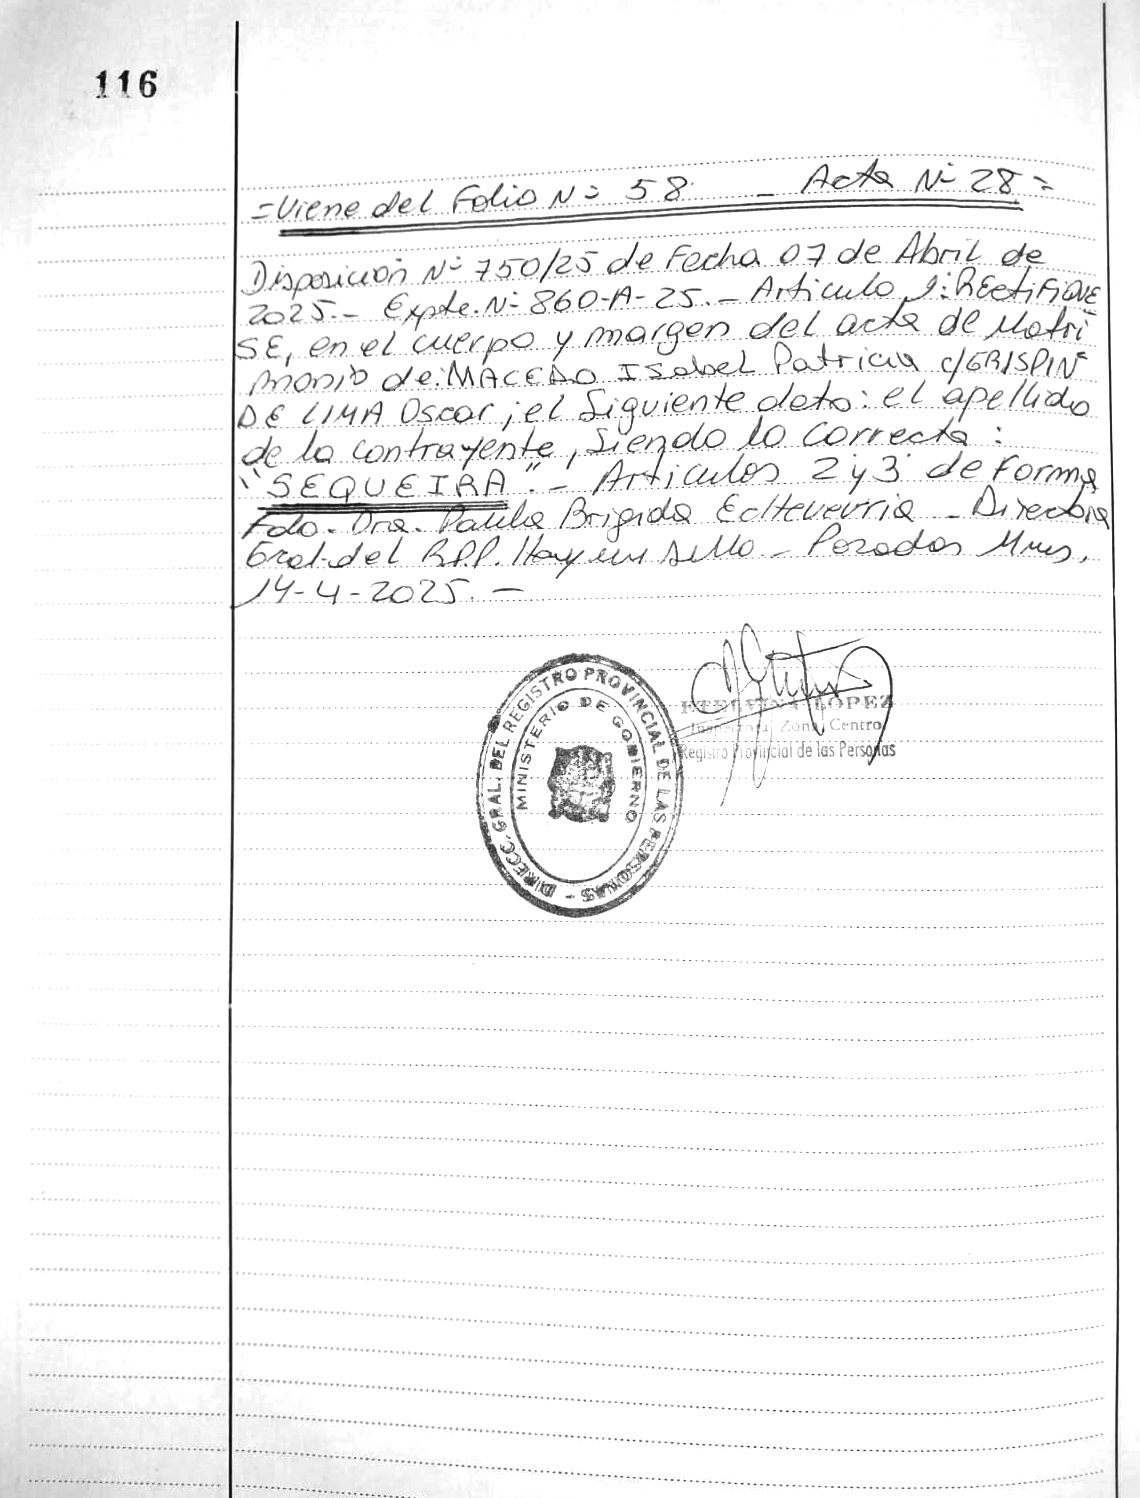 116
=Viene del Folio Nº 58. - Acta Nº 28=
Disposición Nº 750/25 de Fecha 07 de Abril de
2025.- Expte. Nº 860-A-25.- Articulo 1: REctiFiQUE
SE, en el cuerpo y margen del acta de Matri
monio de: MACEDO ISabel Patricia c/GRISPIN
DE LIMA Oscar, el Siguiente dato: el apellido
de la contrayente, Siendo lo correcta:
"SEQUEIRA".- Articulos 2 y 3 de Forma,
Fdo. Dra. Paula Brigida Echeverria - Directora
Gral. del R.P.P. Hay un sello - Posadas Mnes,
14-4-2025. -
DIRECC. GRAL. DEL REGISTRO PROVINCIAL DE LAS PERSONAS -
MINISTERIO DE GOBIERNO
ETELVINA LOPEZ
Inspectora Zona Centro
Registro Provincial de las Personas